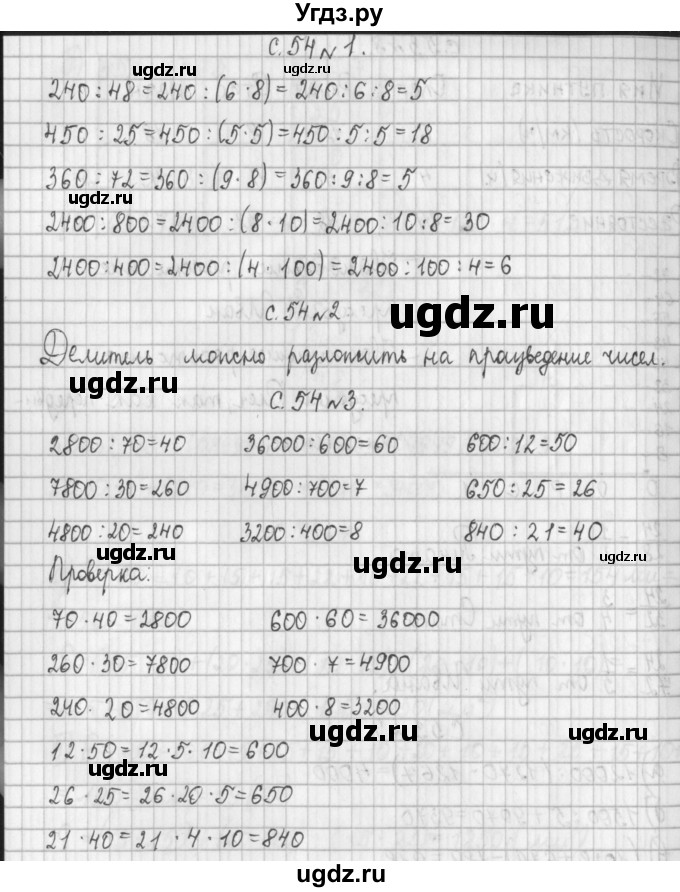 Угдз.ру
с. 54 № 1.
ugdz.ru ugdz.ru
240 : 48 = 240 : (6 · 8) = 240 : 6 : 8 = 5
450 : 25 = 450 : (5 · 5) = 450 : 5 : 5 = 18
360 : 72 = 360 : (9 · 8) = 360 : 9 : 8 = 5
ugdz.ru
2400 : 800 = 2400 : (8 · 10) = 2400 : 10 : 8 = 30
2400 : 400 = 2400 : (4 · 100) = 2400 : 100 : 4 = 6
с. 54 № 2
ugdz.ru
Делитель можно разложить на прозведение чисел.
ugdz.ru
с. 54 № 3.
ugdz.ru
2800 : 70 = 40 36000 : 600 = 60 600 : 12 = 50
7800 : 30 = 260 4900 : 700 = 7 650 : 25 = 26
4800 : 20 = 240 3200 : 400 = 8 840 : 21 = 40
ugdz.ru ugdz.ru
Проверка:
ugdz.ru
70 · 40 = 2800 600 · 60 = 36000
260 · 30 = 7800 700 · 7 = 4900
240 · 20 = 4800 400 · 8 = 3200
ugdz.ru ugdz.ru
12 · 50 = 12 · 5 · 10 = 600
ugdz.ru
26 · 25 = 26 · 20 · 5 = 650
21 · 40 = 21 · 4 · 10 = 840
ugdz.ru